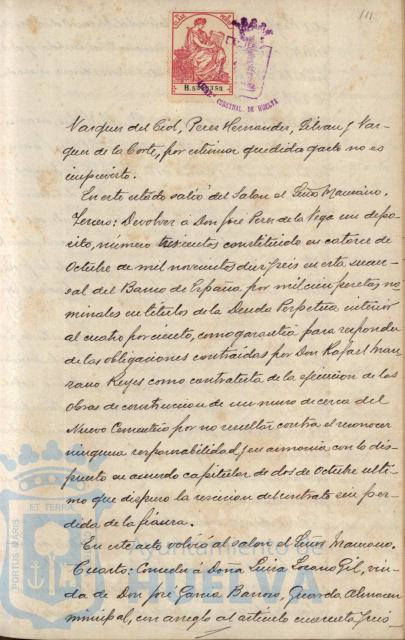 111
B.5
353
CONSISTORIAL DE HUELVA
Vazquez del Cid, Perez Hernandez, Galvan y Vaz-
quez de la Corte, por estimar que dicho gasto no es
imprevisto.
En este estado salió del Salon el Señor Manzano.
Tercero: Devolver á Don José Perez de la Vega un depo-
sito, número trescientos constituido en catorce de
Octubre de mil novecientos diez y seis en esta sucur-
sal del Banco de España, por mil cien pesetas no-
minales en titulos de la Deuda Perpetua interior
al cuatro por ciento, como garantia para responder
de las obligaciones contraidas por Don Rafael Man-
zano Reyes como contratista de la ejecucion de las
Obras de construccion de un muro de cerca del
Nuevo Cementerio por no resultar contra el reconocer
ninguna responsabilidad y en armonia con lo dis-
puesto en acuerdo capitular de dos de Octubre ulti-
mo que dispuso la rescision del contrato sin per-
dida de la fianza.
En este acto volvió al salon el Señor Manzano.
Cuarto: Conceder á Doña Luisa Lozano Gil, viu-
da de Don José Garcia Barroso, Guarda Almacen
municipal, con arreglo al articulo cuarenta y seis
PORTUS MARIS ET TERRAE
Ayuntamiento de
HUELVA